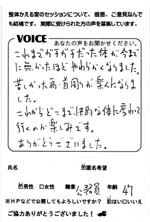 整体かえる堂のセッションについて、感想、ご意見なんで
も結構です。実際に受けられた方の声を募集しています。
VOICE
あなたの声をお聞かせください。
これまでガチガチだった体が今まで
に無かったほどやわらかくなりました。
苦しかった肩、首周りが楽になりま
した。
これからどこまで快適な体に変わって
行くのか楽しみです。
ありがとうございました。
氏名 ☑匿名希望
☑男性 □女性 職業 公務員 年齢 47
※HPなどで公開してもよろしいですか? ☑はい □いいえ
ご協力ありがとうございました!